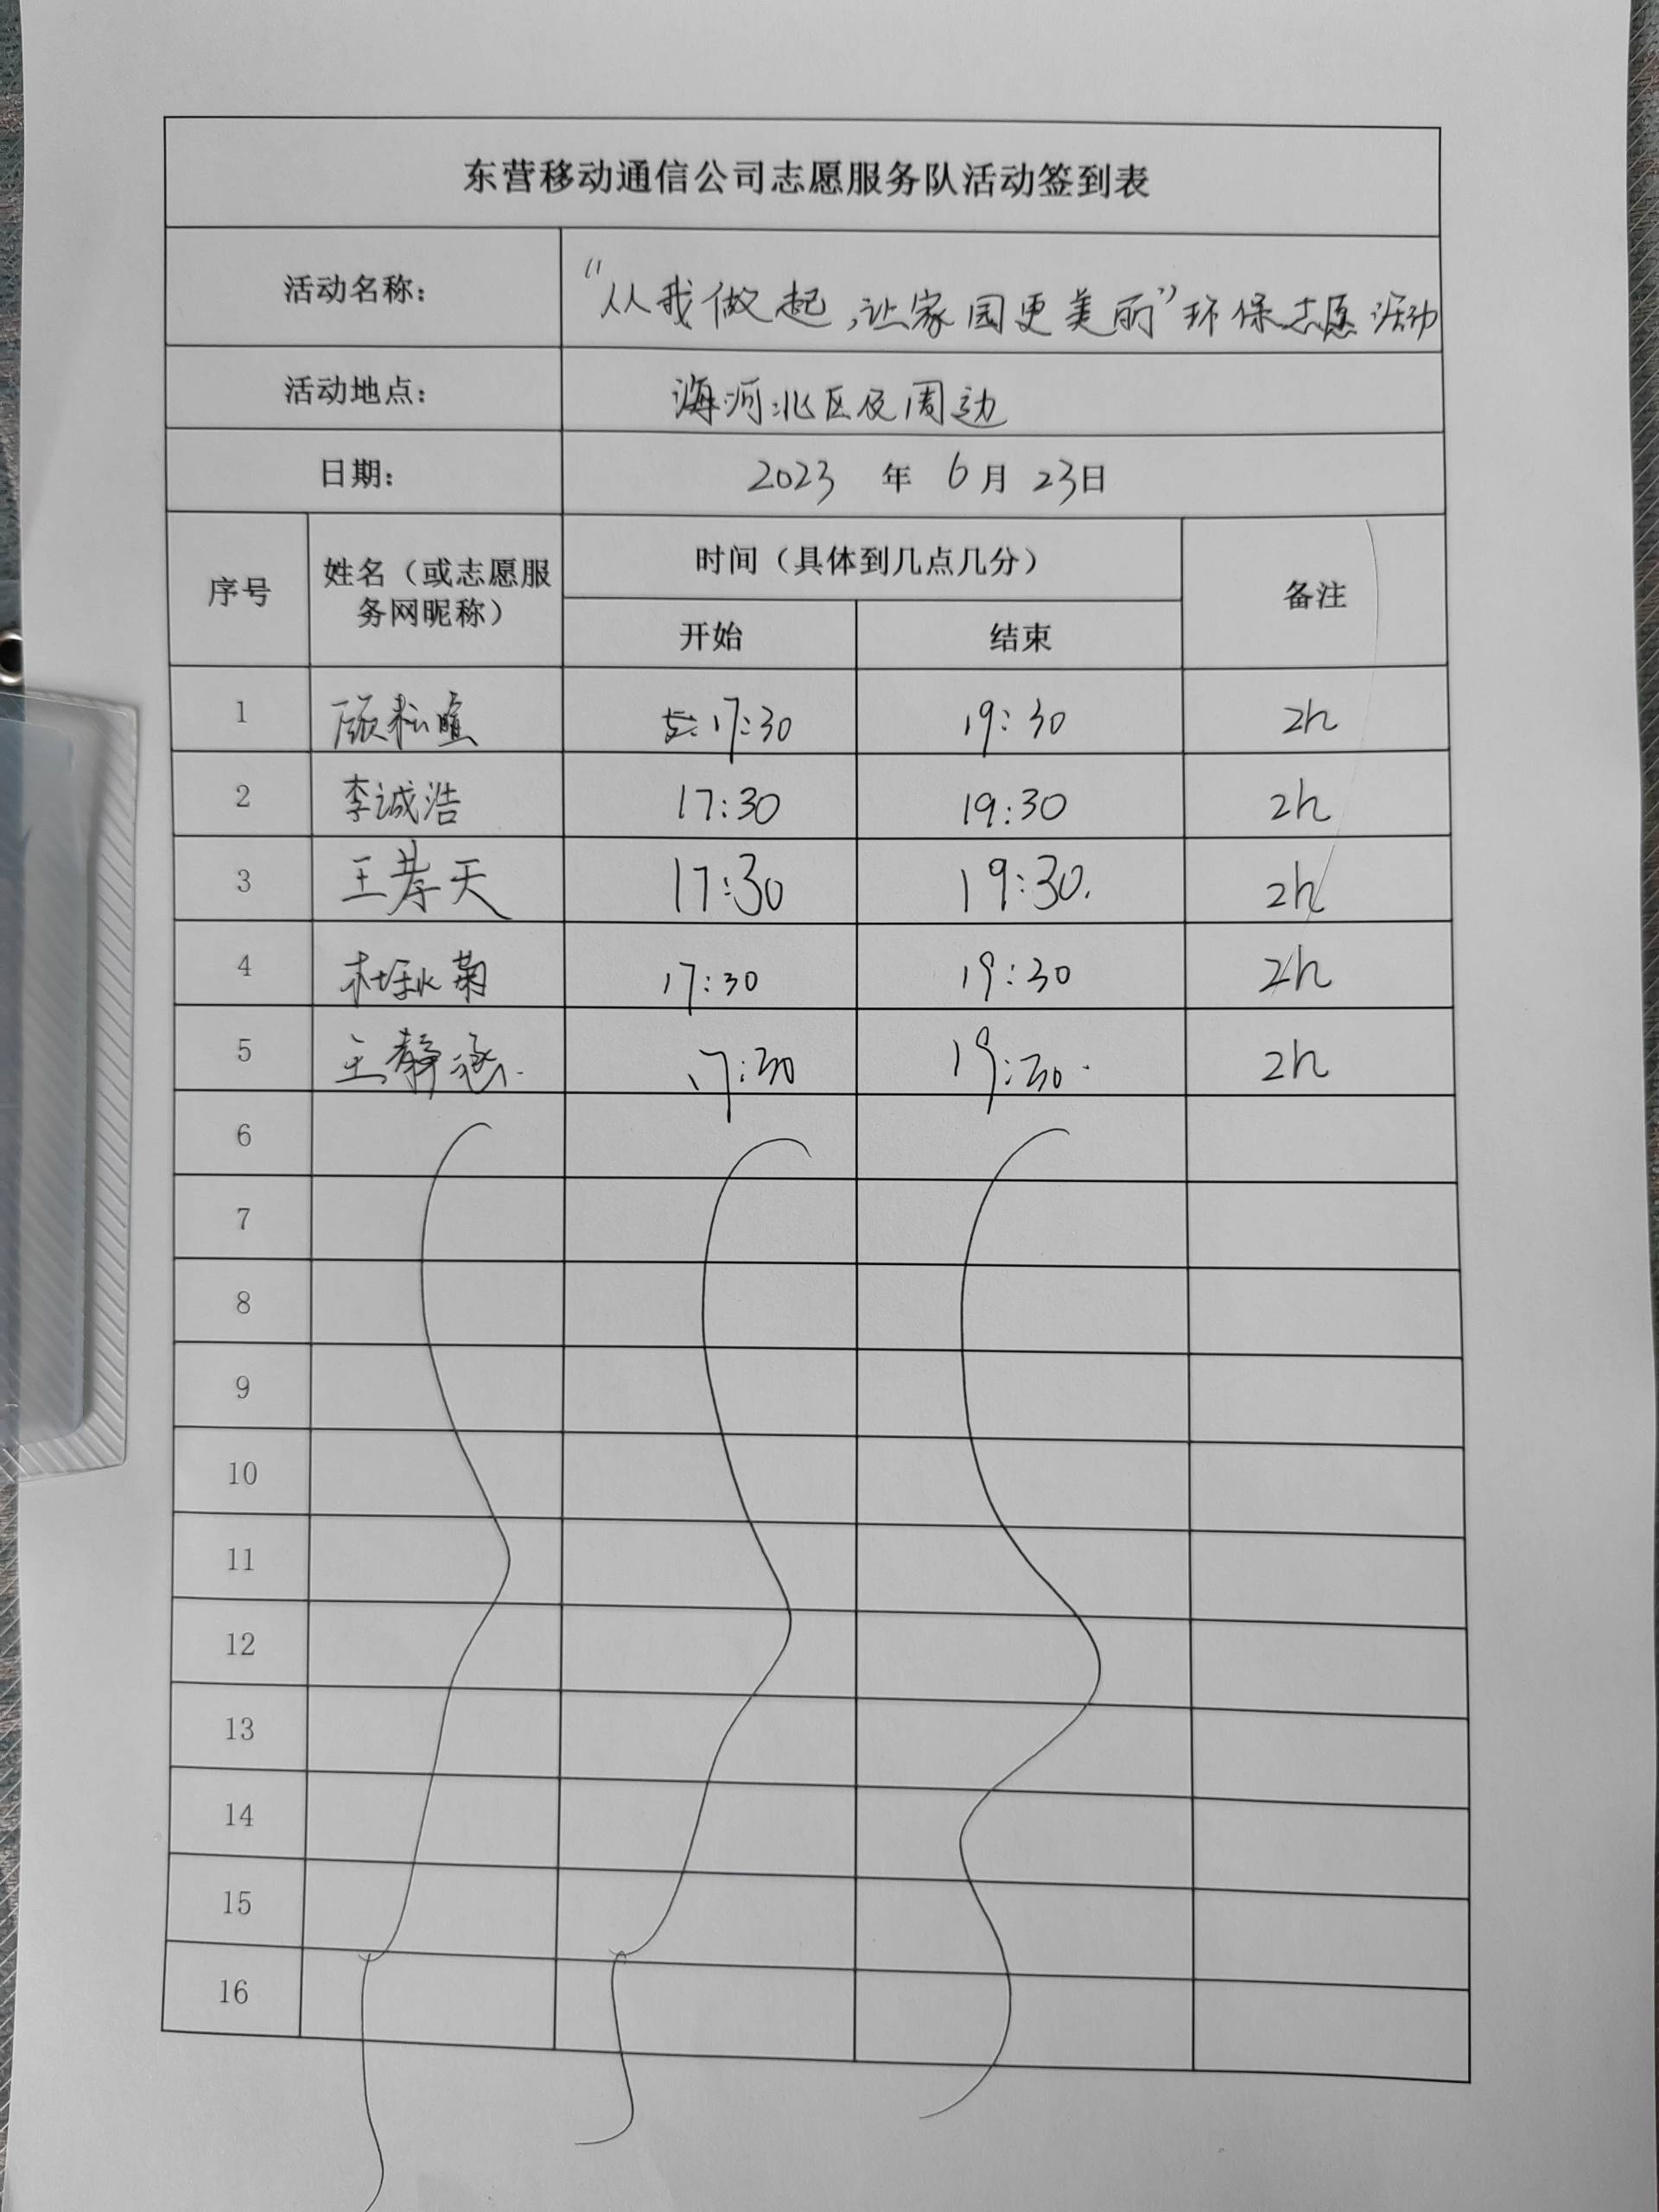 东营移动通信公司志愿服务队活动签到表
活动名称： “从我做起,让家园更美丽”环保志愿活动
活动地点： 海河北区及周边
日期： 2023 年 6月 23日
序号 姓名（或志愿服务网昵称） 时间（具体到几点几分） 备注
开始 结束
1 顾松暄 17:30 19:30 2h
2 李诚浩 17:30 19:30 2h
3 王孝天 17:30 19:30. 2h
4 杜秋菊 17:30 19:30 2h
5 王静涵. 17:30 19:30. 2h
6
7
8
9
10
11
12
13
14
15
16